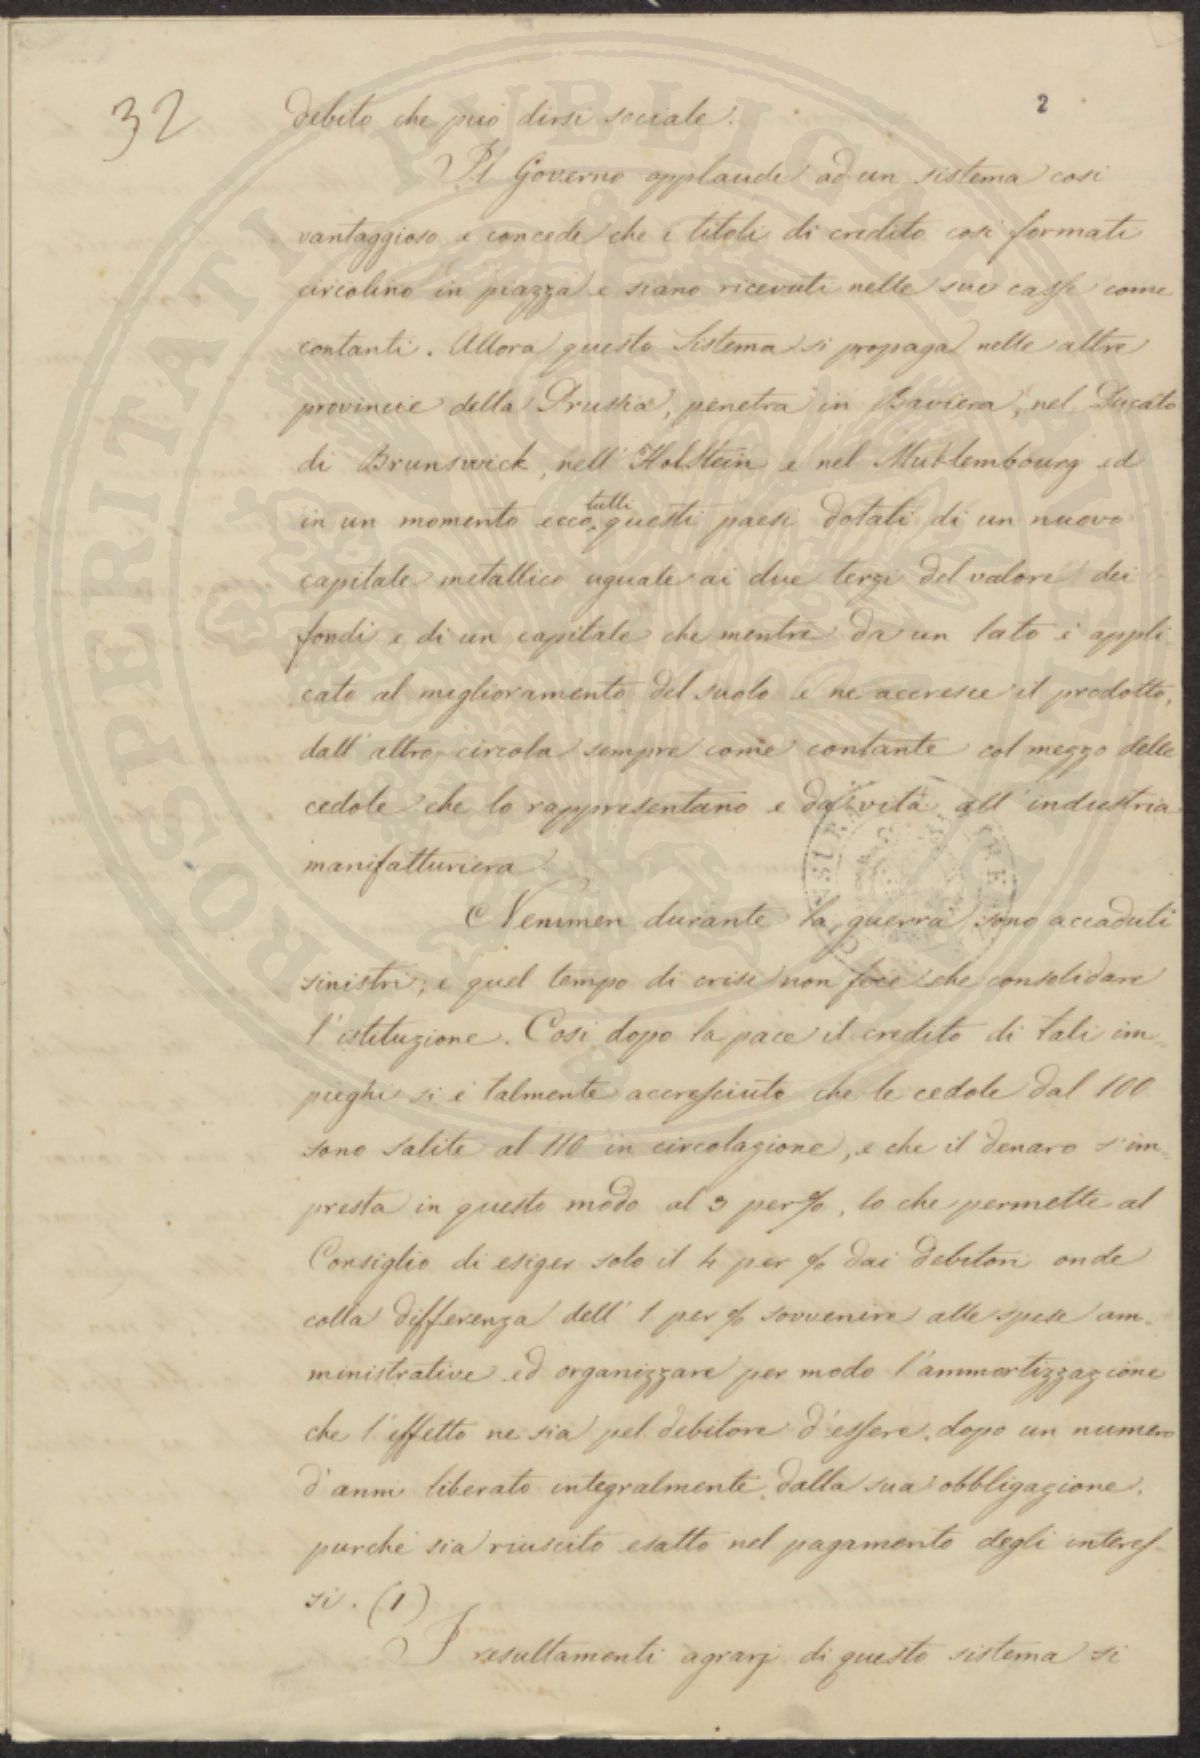 32
2
debito che può dirsi sociale.
Il Governo applaude ad un sistema così
vantaggioso e concede che i titoli di credito così formati
circolino in piazza e siano ricevuti nelle sue casse come
contanti. Allora questo Sistema si propaga nelle altre
provincie della Prussia, penetra in Baviera, nel Ducato
di Brunswick, nell'Holstein e nel Muklembourg ed
in un momento ecco tutti questi paesi dotati di un nuovo
capitale metallico uguale ai due terzi del valore dei
fondi e di un capitale che mentre da un lato è appli
cato al miglioramento del suolo e ne accresce il prodotto,
dall'altro circola sempre come contante col mezzo delle
cedole che lo rappresentano e dà vita all'industria
manifatturiera
Nemmen durante la guerra sono accaduti
sinistri, e quel tempo di crise non fece che consolidare
l'istituzione. Così dopo la pace il credito di tali im=
pieghi si è talmente accresciuto che le cedole dal 100
sono salite al 110 in circolazione, e che il denaro s'im=
presta in questo modo al 3 per %, lo che permette al
Consiglio di esiger solo il 4 per % dai debitori onde
colla differenza dell'1 per % sovvenire alle spese am=
ministrative ed organizzare per modo l'ammortizzazione
che l'effetto ne sia pel debitore d'essere, dopo un numero
d'anni liberato integralmente dalla sua obbligazione,
purchè sia riuscito esatto nel pagamento degli interes=
si. (1)
I resultamenti agrarj di questo sistema si
PROSPERITATI PUBLICAE